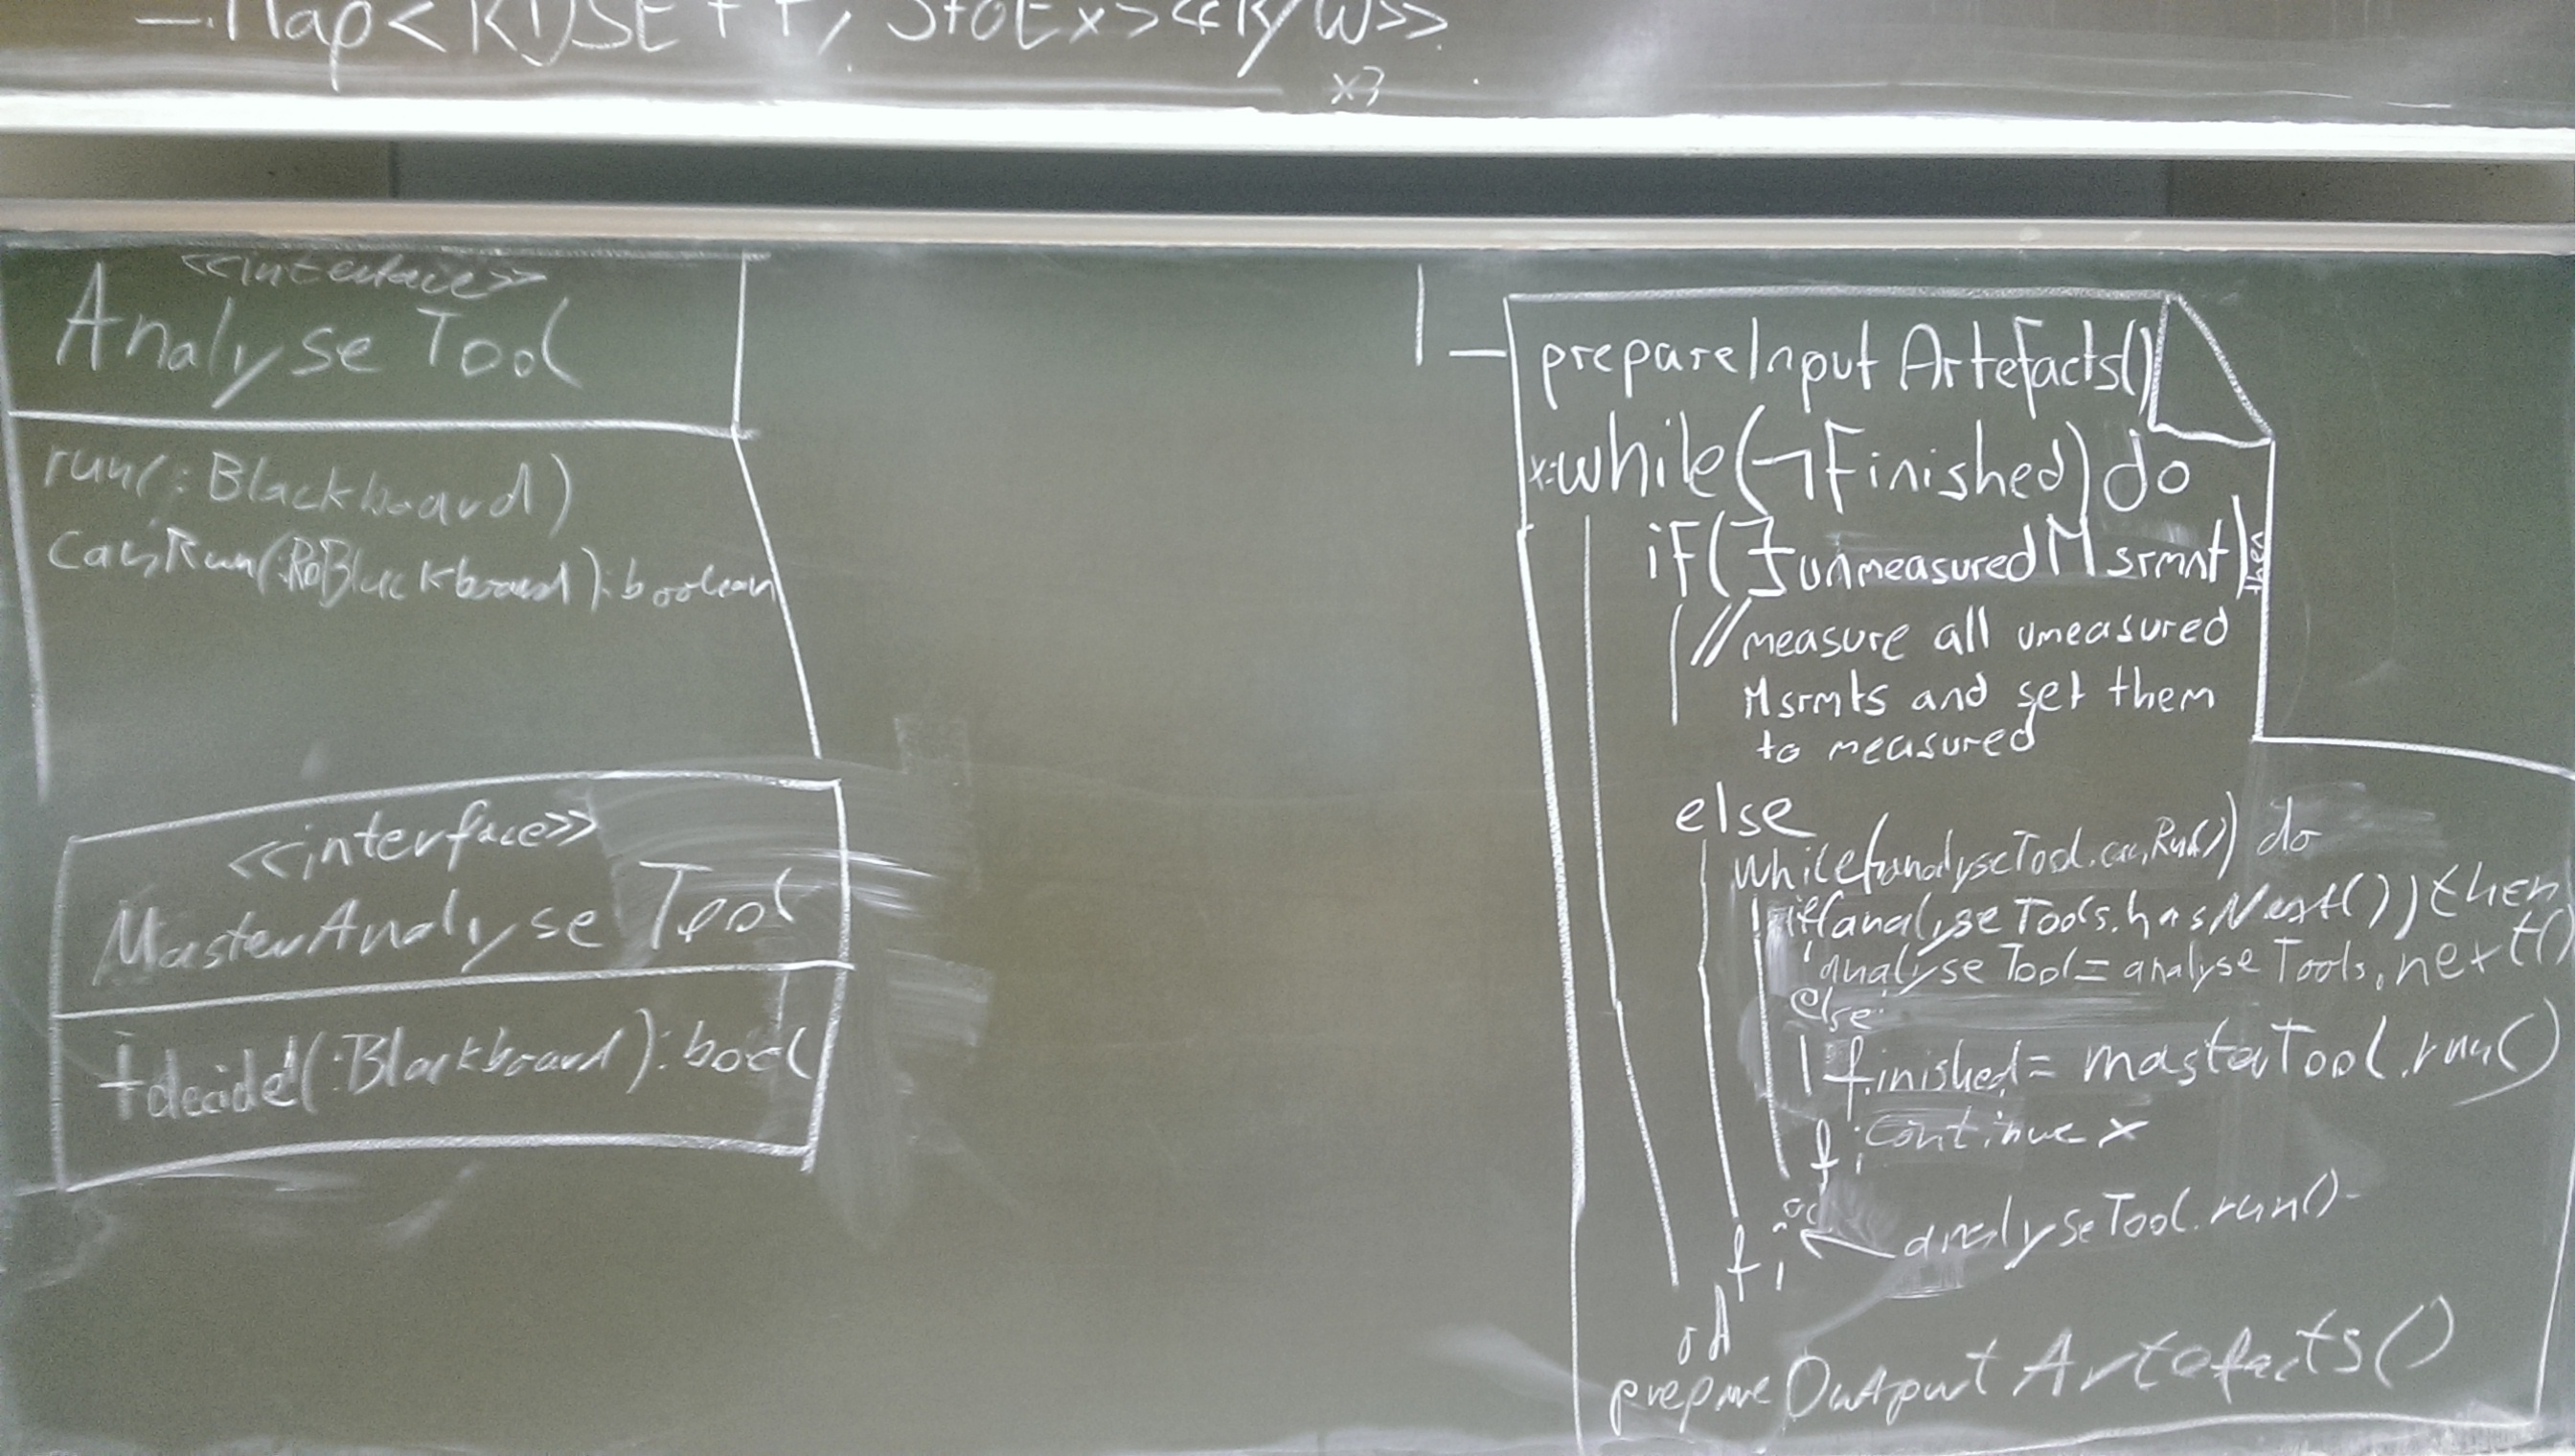 x3
<<interface>>
Analyse Tool
run(:Blackboard)
canRun(:RoBlackboard):boolean
<<interface>>
MasterAnalyse Tool
+decide(:Blackboard):bool
prepareInputArtefacts()
x:while(¬Finished) do
if(∃unmeasuredMsrmnt) then
//measure all umeasured
Msrmts and set them
to measured
else
while(¬analyseTool.canRun()) do
if(analyseTools.hasNext()) then
analyseTool = analyseTools.next()
else
finished = masterTool.run()
continue x
fi
od
analyseTool.run()
fi
od
prepareOutputArtefacts()